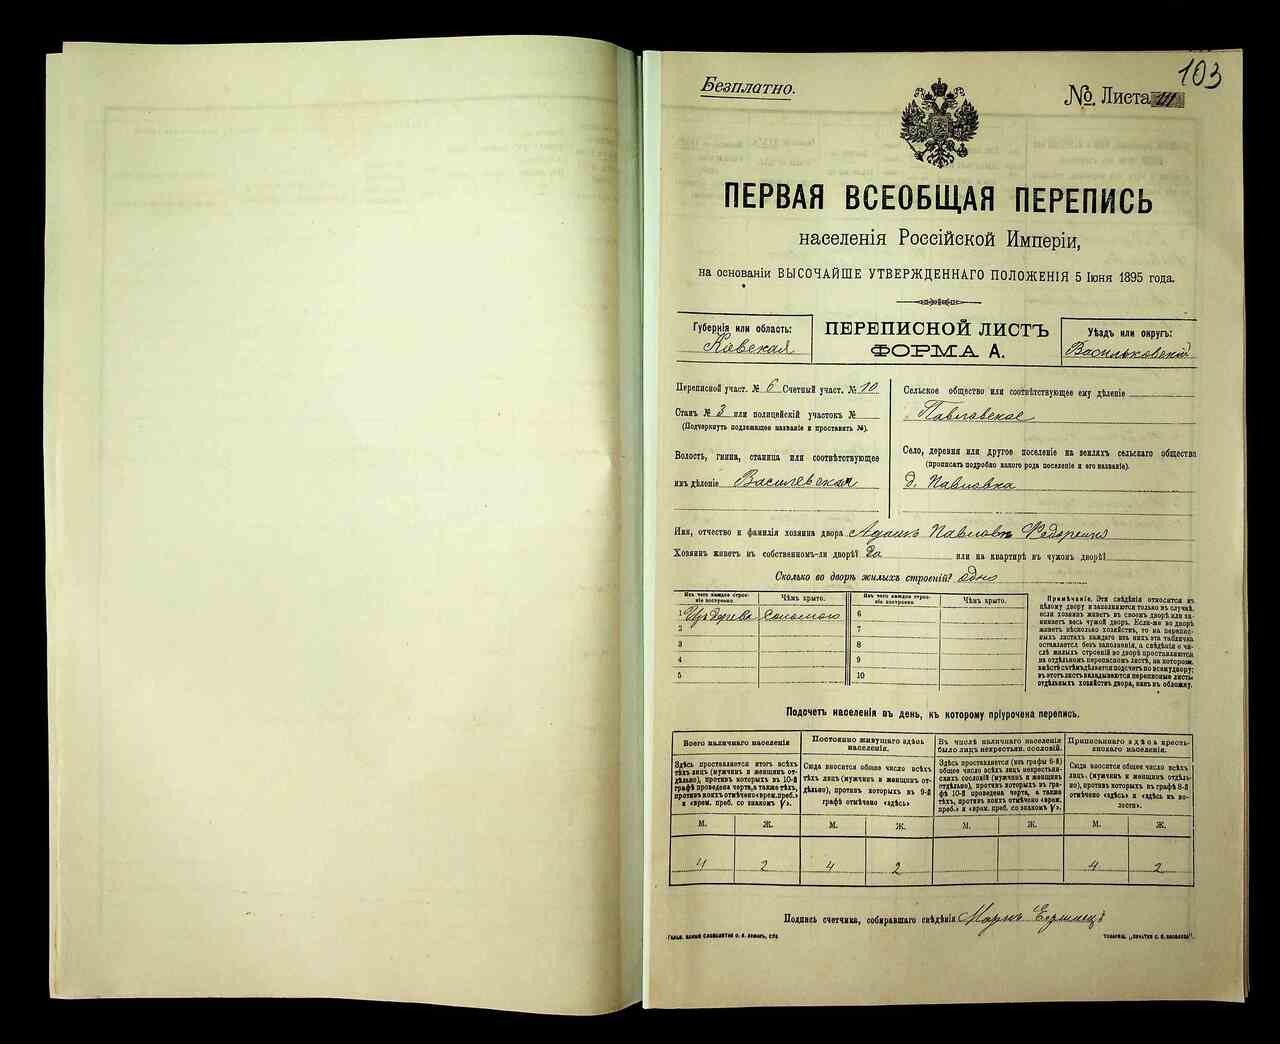 103
Безплатно.
№ Листа
ПЕРВАЯ ВСЕОБЩАЯ ПЕРЕПИСЬ
населенія Россійской Имперіи,
на основаніи ВЫСОЧАЙШЕ УТВЕРЖДЕННАГО ПОЛОЖЕНІЯ 5 Іюня 1895 года.
Губернія или область:
Кіевская
ПЕРЕПИСНОЙ ЛИСТЪ
ФОРМА А.
Уѣздъ или округъ:
Васильковскій
Переписной участ. № 6 Счетный участ. № 10
Станъ № 3 или полицейскій участокъ №
(Подчеркнуть подлежащее названіе и проставить №).
Волость, гмина, станица или соотвѣтствующее
имъ дѣленіе Василевская
Сельское общество или соотвѣтствующее ему дѣленіе
Павловское
Село, деревня или другое поселеніе на земляхъ сельскаго общества
(прописать подробно какого рода поселеніе и его названіе).
д. Павловка
Имя, отчество и фамилія хозяина двора Адамъ Павловъ
Хозяинъ живетъ въ собственномъ-ли дворѣ? Да или на квартирѣ въ чужомъ дворѣ?
Сколько во дворѣ жилыхъ строеній? одно
Изъ чего каждое строеніе построено
Чѣмъ крыто.
Изъ чего каждое строеніе построено
Чѣмъ крыто.
1 Изъ дерева соломою 6
2 7
3 8
4 9
5 10
Примѣчаніе. Эти свѣдѣнія относятся къ
цѣлому двору и заполняются только въ случаѣ,
если хозяинъ живетъ въ своемъ дворѣ или занимаетъ
весь чужой дворъ. Если-же во дворѣ
живетъ нѣсколько хозяйствъ, то на переписныхъ
листахъ каждаго изъ нихъ эта табличка
оставляется безъ заполненія, а свѣдѣнія о числѣ
жилыхъ строеній во дворѣ проставляются
на отдѣльномъ переписномъ листѣ, на которомъ
вмѣстѣ съ тѣмъ дѣлается подсчетъ по всему двору;
въ этотъ листъ вкладываются переписные листы
отдѣльныхъ хозяйствъ двора, какъ въ обложку.
Подсчетъ населенія въ день, къ которому пріурочена перепись.
Всего наличнаго населенія
Здѣсь проставляется итогъ всѣхъ
тѣхъ лицъ (мужчинъ и женщинъ отдѣльно),
противъ которыхъ въ 10-й
графѣ проведена черта, а также тѣхъ,
противъ коихъ отмѣчено «врем. преб.»
и «врем. преб. со знакомъ V».
Постоянно живущаго здѣсь
населенія.
Сюда вносится общее число всѣхъ
тѣхъ лицъ (мужчинъ и женщинъ отдѣльно),
противъ которыхъ въ 9-й
графѣ отмѣчено «здѣсь»
Въ числѣ наличнаго населенія
было лицъ некрестьян. сословій.
Здѣсь проставляется (изъ графы 6-й)
общее число всѣхъ лицъ некрестьянскихъ
сословій (мужчинъ и женщинъ
отдѣльно), противъ которыхъ въ графѣ
10-й проведена черта, а также
тѣхъ, противъ коихъ отмѣчено «врем.
преб.» и «врем. преб. со знакомъ V».
Приписаннаго здѣсь крестьянскаго
населенія.
Сюда вносится общее число всѣхъ
лицъ (мужчинъ и женщинъ отдѣльно),
противъ которыхъ въ графѣ 8-й
отмѣчено «здѣсь» и «здѣсь въ волости».
М. Ж. М. Ж. М. Ж. М. Ж.
4 2 4 2 4 2
Подпись счетчика, собиравшаго свѣдѣнія